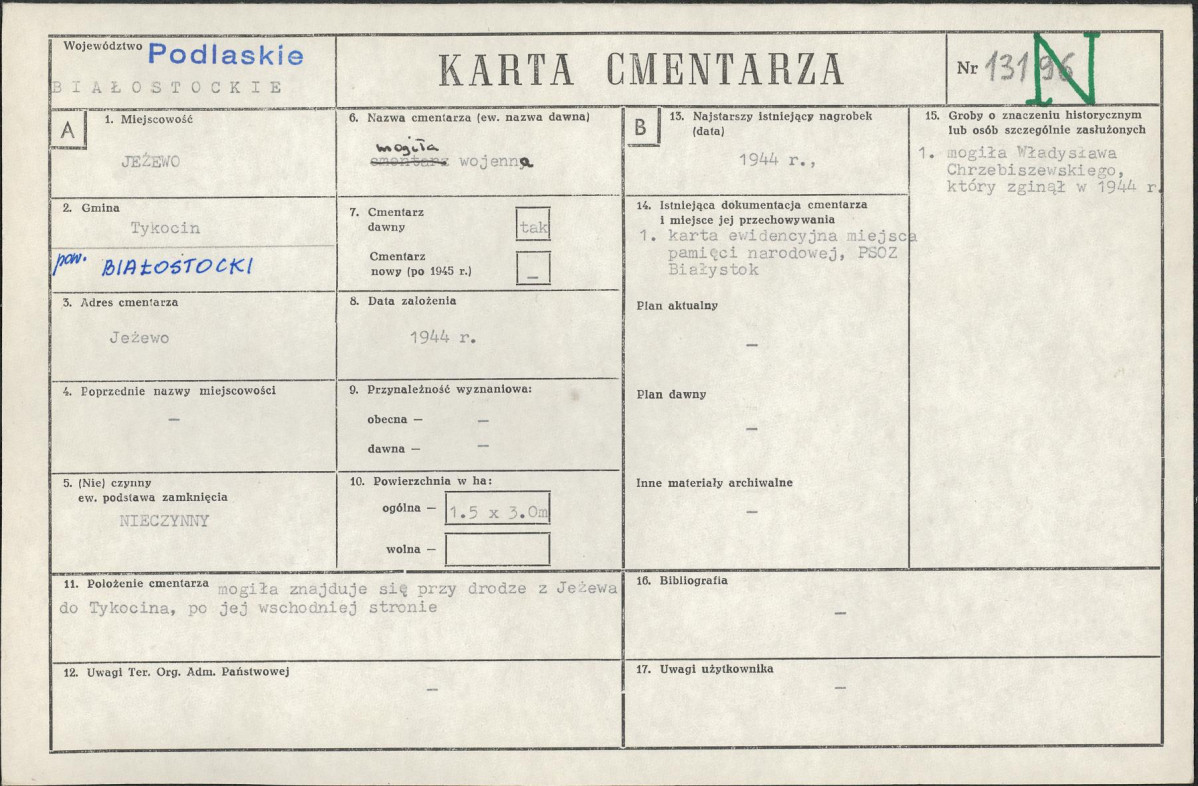 Województwo Podlaskie
BIAŁOSTOCKIE
KARTA CMENTARZA
Nr 13196
N
A
1. Miejscowość
JEŻEWO
2. Gmina
Tykocin
pow. BIAŁOSTOCKI
3. Adres cmentarza
Jeżewo
4. Poprzednie nazwy miejscowości
–
5. (Nie) czynny
ew. podstawa zamknięcia
NIECZYNNY
6. Nazwa cmentarza (ew. nazwa dawna)
mogiła
cmentarz wojenna
7. Cmentarz
dawny
tak
Cmentarz
nowy (po 1945 r.)
–
8. Data założenia
1944 r.
9. Przynależność wyznaniowa:
obecna — –
dawna — –
10. Powierzchnia w ha:
ogólna — 1.5 x 3.0m
wolna —
11. Położenie cmentarza mogiła znajduje się przy drodze z Jeżewa
do Tykocina, po jej wschodniej stronie
12. Uwagi Ter. Org. Adm. Państwowej
–
B
13. Najstarszy istniejący nagrobek
(data)
1944 r.,
14. Istniejąca dokumentacja cmentarza
i miejsce jej przechowywania
1. karta ewidencyjna miejsca
pamięci narodowej, PSOZ
Białystok
Plan aktualny
–
Plan dawny
–
Inne materiały archiwalne
–
15. Groby o znaczeniu historycznym
lub osób szczególnie zasłużonych
1. mogiła Władysława
Chrzebiszewskiego,
który zginął w 1944 r.
16. Bibliografia
–
17. Uwagi użytkownika
–